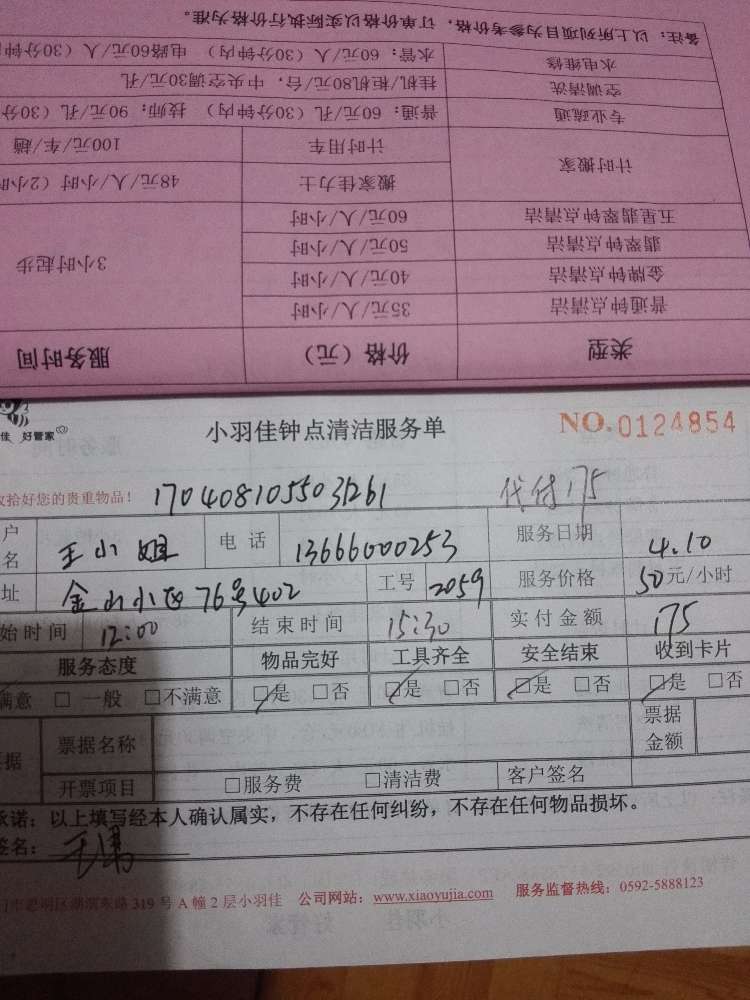 备注：以上所列项目为参考价格，订单价格以实际执行价格为准。
水电维修 水管：60元/人（30分钟内） 电路60元/人（30分钟内
空调清洗 挂机/柜机80元/台，中央空调30元/孔
专业疏通 普通：60元/孔（30分钟内） 技师：90元/孔（30分
计时搬家 计时用车 100元/车/趟
搬家佳力士 48元/人/小时（2小时
五星翡翠钟点清洁 60元/人/小时
翡翠钟点清洁 50元/人/小时 3小时起步
金牌钟点清洁 40元/人/小时
普通钟点清洁 35元/人/小时
类型 价格（元） 服务时间
佳 好管家
小羽佳钟点清洁服务单 NO.0124854
收拾好您的贵重物品！ 1704081055031261 代付175
户名 王小姐 电话 13666000253 服务日期 4.10
址 金山小区76号402 工号 2059 服务价格 50元/小时
始时间 12:00 结束时间 15:30 实付金额 175
服务态度 物品完好 工具齐全 安全结束 收到卡片
满意 □ 一般 □不满意 □是 □否 □是 □否 □是 □否 □是 □否
据 票据名称 票据金额
开票项目 □服务费 □清洁费 客户签名
承诺：以上填写经本人确认属实，不存在任何纠纷，不存在任何物品损坏。
签名：
门市思明区湖滨东路319号A幢2层小羽佳 公司网站：www.xiaoyujia.com 服务监督热线：0592-5888123